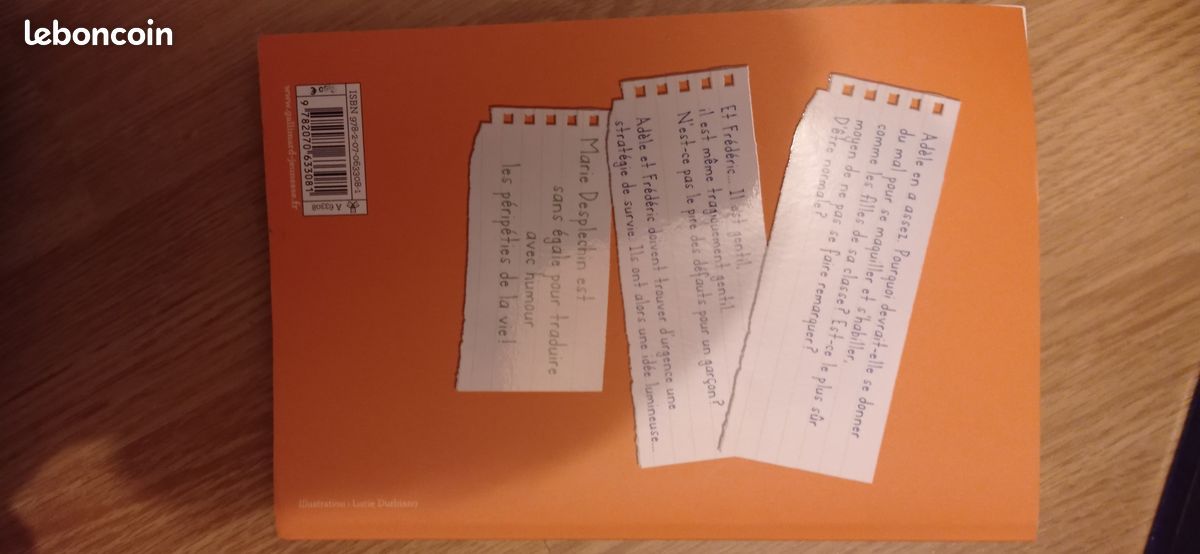 leboncoin
Adèle en a assez. Pourquoi devrait-elle se donner
du mal pour se maquiller et s'habiller,
comme les filles de sa classe? Est-ce le plus sûr
moyen de ne pas se faire remarquer?
D'être normale?
Et Frédéric... Il est gentil.
il est même tragiquement gentil.
N'est-ce pas le pire des défauts pour un garçon?
Adèle et Frédéric doivent trouver d'urgence une
stratégie de survie. Ils ont alors une idée lumineuse...
Marie Desplechin est
sans égale pour traduire
avec humour
les péripéties de la vie!
ISBN 978-2-07-063308-1
A 63308
9 782070 633081
www.gallimard-jeunesse.fr
Illustration : Lucie Durbiano